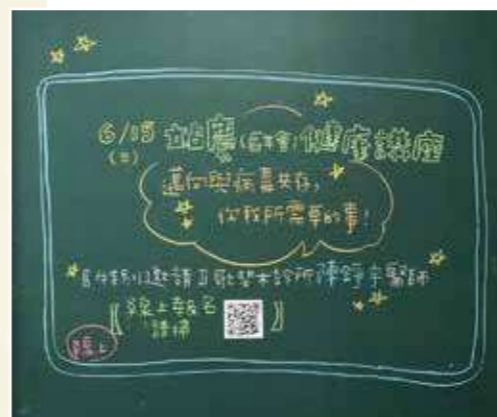 6/15 站慶(百年會)健康講座
(三)
邁向與病毒共存,
你我所需要的事!
特別邀請 診所陳錚宇醫師
【線上報名
請掃】
線上